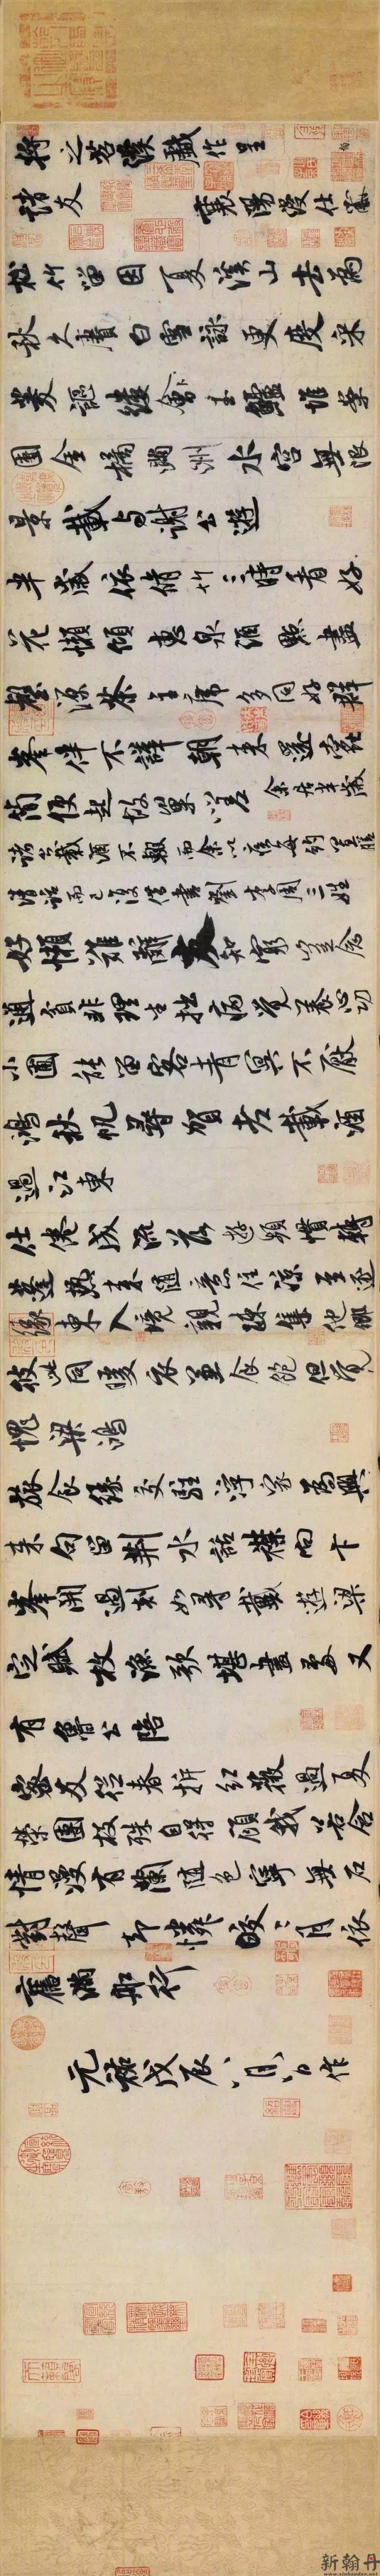 將之苕溪戲作呈
諸友 襄陽漫仕黻
松竹留因夏溪山去為
秋久賡白雪詠更度采
菱謳縷會玉鱸堆案
團金橘滿洲水宮無限
景載與謝公遊
半歲依脩竹三時看好
花懶傾惠泉酒點盡
壑源茶主席多同好群
峯伴不譁朝來還蠹
簡便起故巢嗟 余居半歲
諸公載酒不輟而余以疾每約置膳
清話而已復借書劉李周三姓
好懶難辭友知窮豈念
通貧非理生拙病覺養心功
小圃能留客青冥不厭
鴻秋帆尋賀老載酒
過江東
仕倦成流落游頻慣轉
蓬熱來隨意住涼至逐
緣東入境親疎集他鄉
彼此同暖衣兼食飽但覺
愧梁鴻
旅食緣交駐浮家為興
來句留荆水話襟向卞
峯開過剡如尋戴遊梁
定賦枚漁歌堪畫處又
有魯公陪
密友從春拆紅薇過夏
榮團枝殊自得顧我若含
情漫有蘭隨色寧無石
對聲却憐皎〻月依
舊滿舡行
元祐戊辰八月八日作
新翰丹